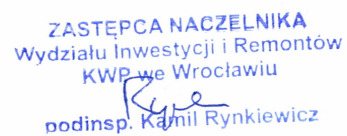 ZASTĘPCA NACZELNIKA
Wydziału Inwestycji i Remontów
KWP we Wrocławiu
podinsp. Kamil Rynkiewicz